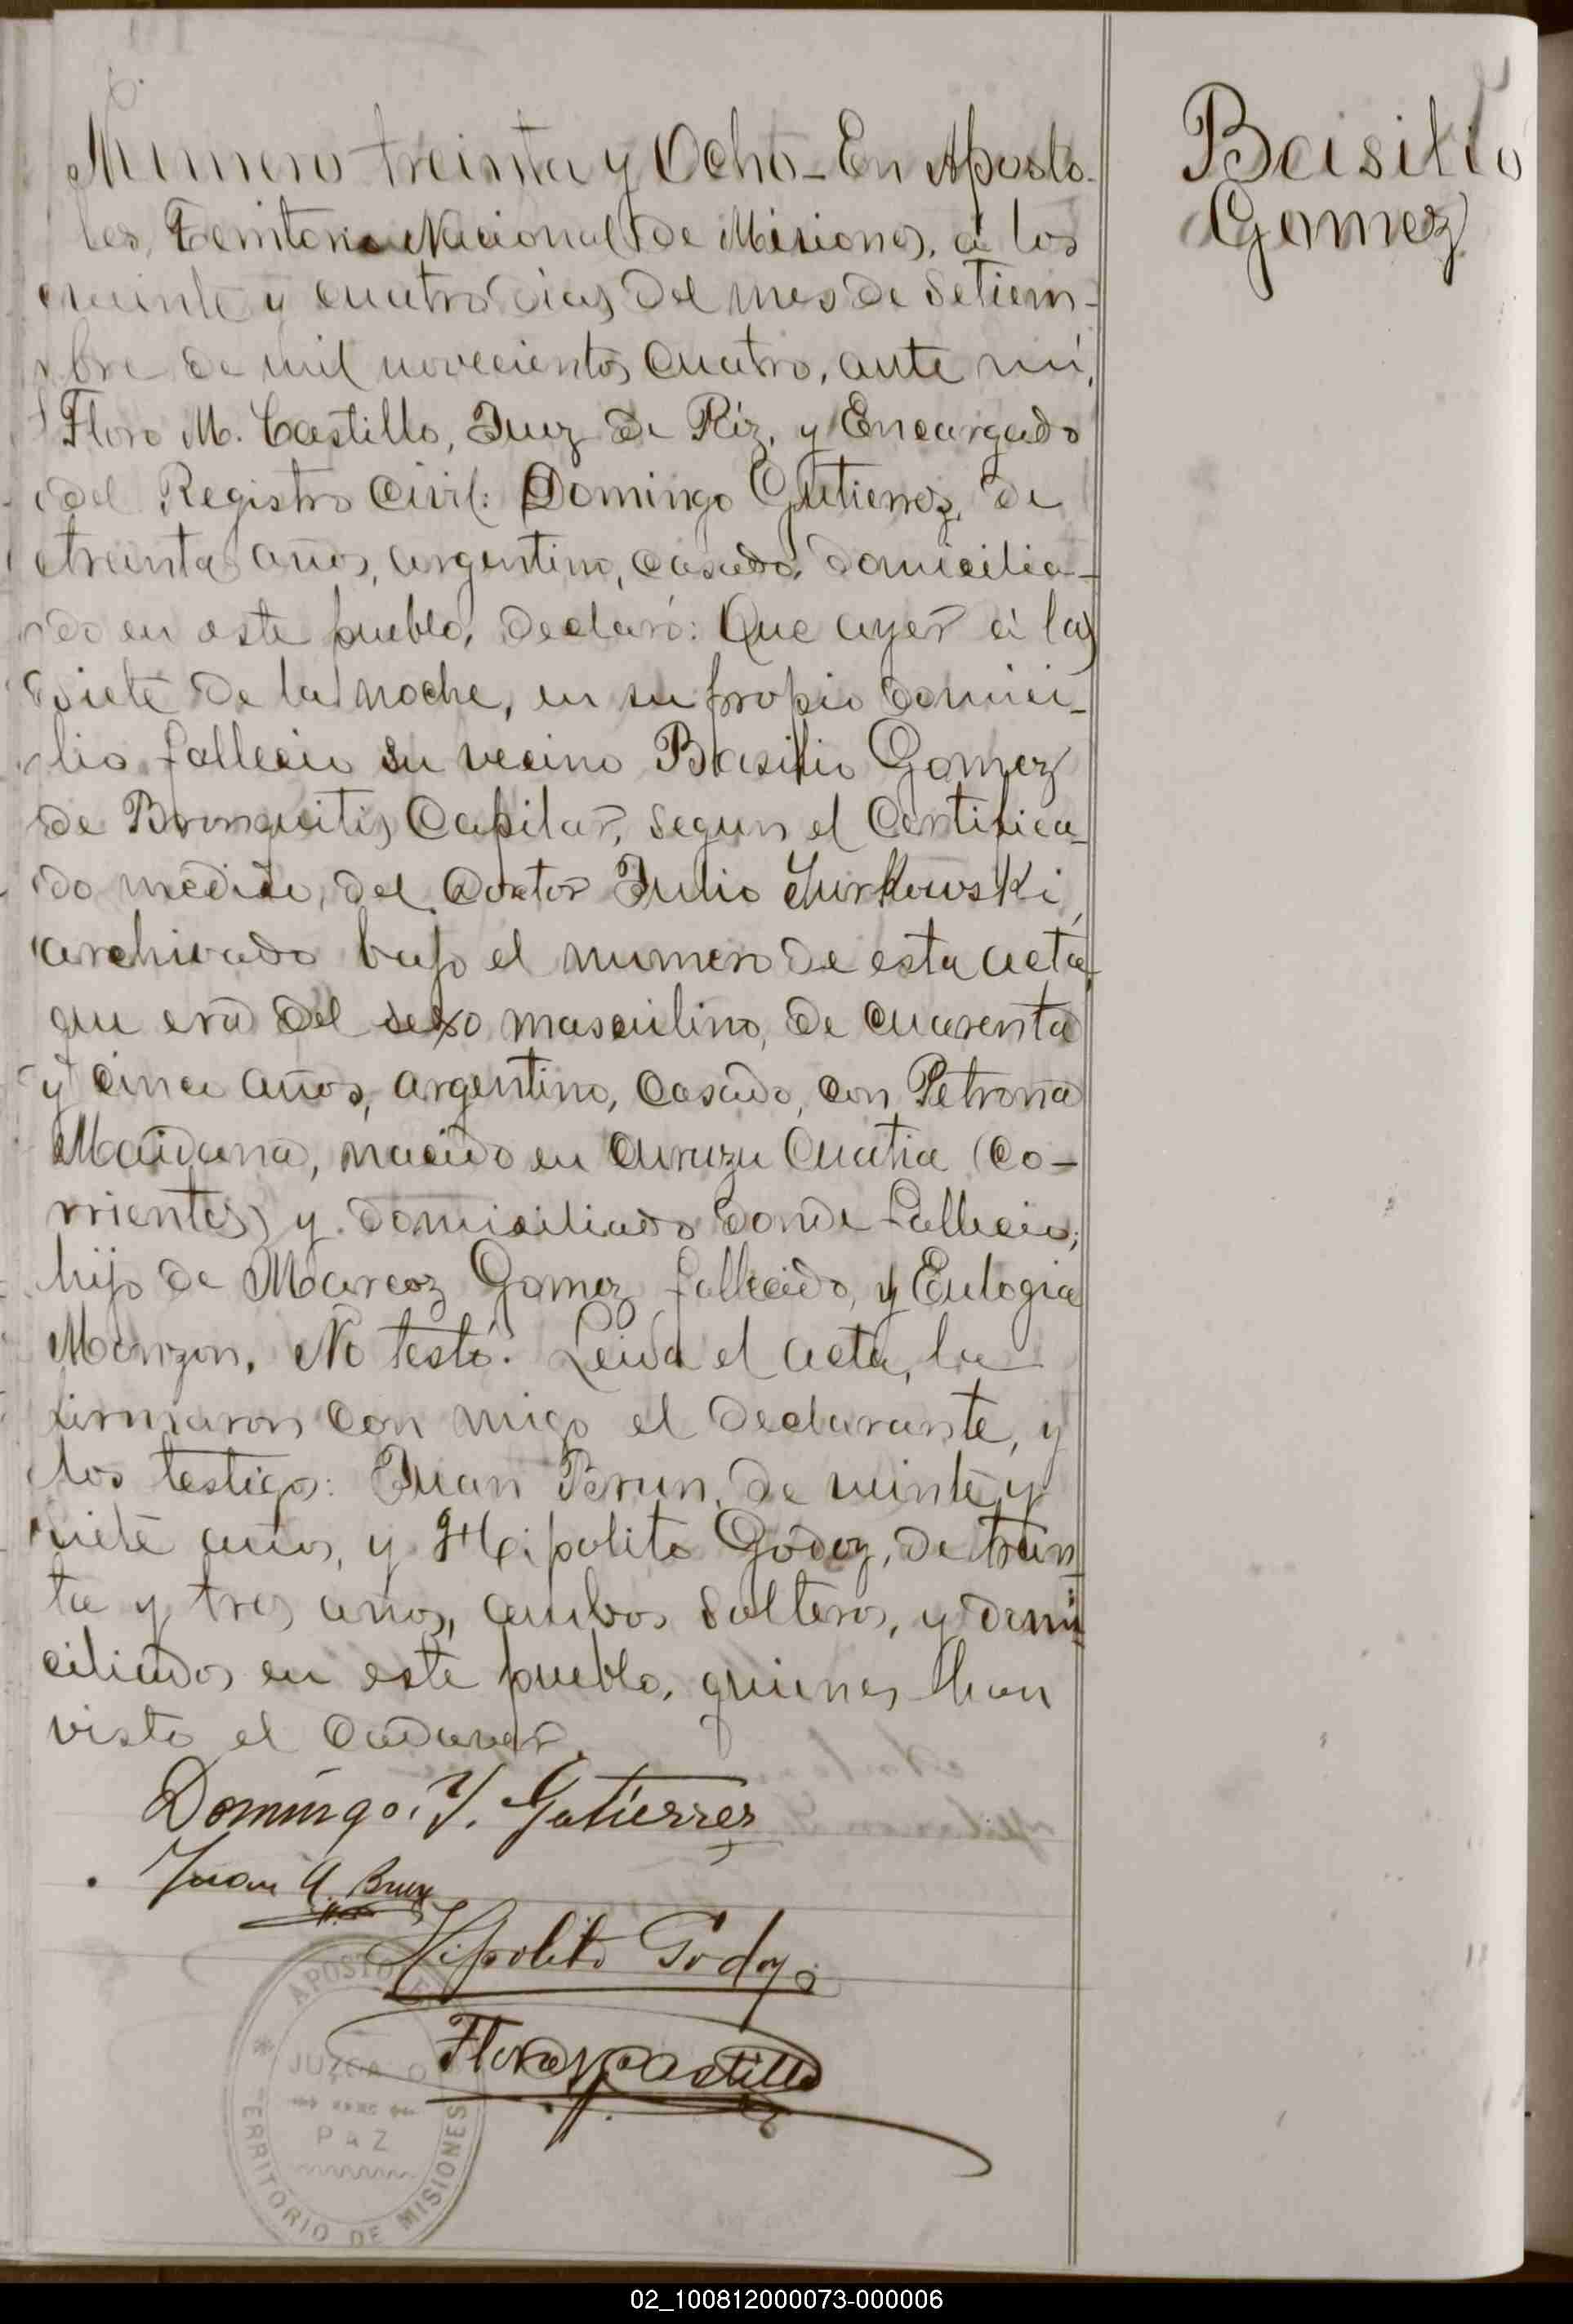 Numero treinta y Ocho_ En Aposto-
les, Territorio Nacional de Misiones, á los
veinte y cuatro dias del mes de Setiem-
bre de mil novecientos cuatro, ante mi,
Floro M. Castillo, Juez de Paz, y Encargado
del Registro Civil: Domingo Gutierrez, de
treinta años, argentino, casado, domicilia-
do en este pueblo, declaró: Que ayer á las
siete de la noche, en su propio domici-
lio fallecio su vecino Basilio Gomez
de Bronquitis Capilar, segun el Certifica-
do medico, del Doctor Julio Jurkowski,
archivado bajo el numero de esta acta,
que era del sexo masculino, de cuarenta
y cinco años, argentino, casado, con Petrona
Maidana, nacido en Curuzu Cuatia (Co-
rrientes) y domiciliado donde fallecio;
hijo de Marcoz Gomez fallecido, y Eulogia
Monzon. No testó. Leida el acta, la
firmaron con migo el declarante, y
los testigos: Juan Brun, de veinte y
siete años, y Hipolito Godoy, de trein
ta y tres años, ambos solteros, y domi
ciliados en este pueblo, quienes han
visto el cadaver.
Domingo. Y. Gutierrez
Juan A. Brun
Hipolito Godoy
Floro M Castillo
APOSTOLES
JUZGADO
DE
PAZ
TERRITORIO DE MISIONES
Basilio
Gomez
02_100812000073-000006